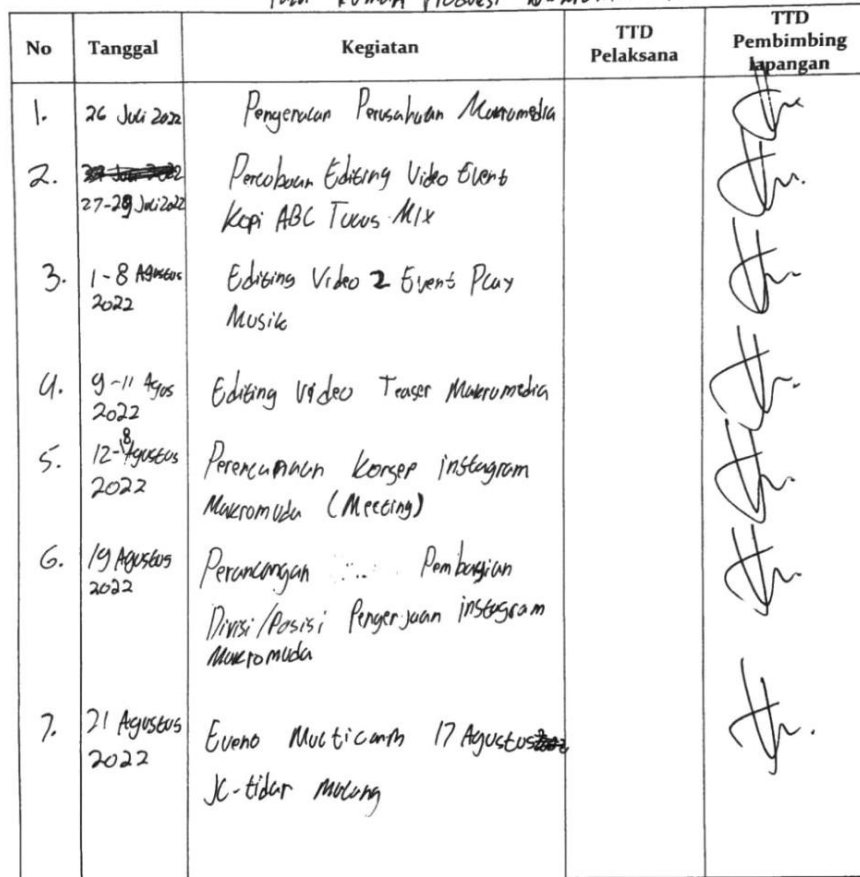 Rumah Produksi
No Tanggal Kegiatan TTD Pelaksana TTD Pembimbing lapangan
1. 26 Juli 2022 Pengenalan Perusahaan Makromedia
2. 27-29 Juli 2022 Percobaan Editing Video Event
Kopi ABC Tulus Mix
3. 1-8 Agustus 2022 Editing Video 2 Event Play
Musik
4. 9-11 Agus 2022 Editing Video Teaser Makromedia
5. 12-18 Agustus 2022 Perencanaan Konsep instagram
Makromuda (Meeting)
6. 19 Agustus 2022 Perancangan Pembagian
Divisi/Posisi Pengerjaan instagram
Makromuda
7. 21 Agustus 2022 Evenο Multicam 17 Agustus
JC-tidar Malang